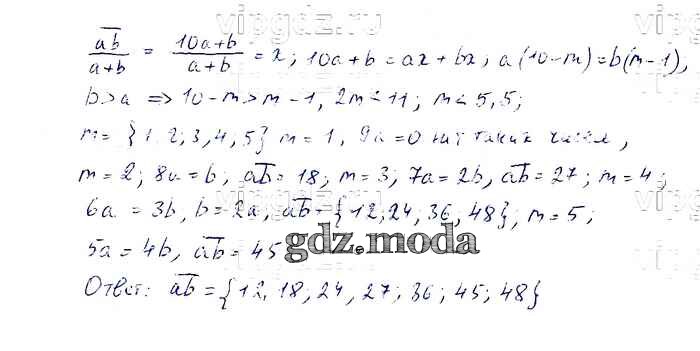 vipgdz.ru vipgdz.ru vipgdz.ru
ab/(a+b) = (10a+b)/(a+b) = x; 10a+b = ax+bx; a(10-m) = b(m-1),
b>a => 10-m > m-1, 2m < 11; m < 5,5;
m = {1, 2; 3, 4, 5} m = 1, 9a = 0 нет таких чисел,
m = 2; 8a = b, ab = 18; m = 3; 7a = 2b, ab = 27; m = 4;
6a = 3b, b = 2a, ab = {12, 24, 36, 48}; m = 5;
5a = 4b, ab = 45
gdz.moda
Ответ: ab = {12, 18; 24, 27; 36; 45; 48}